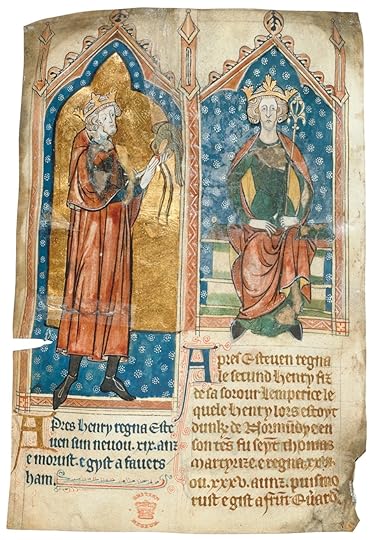 Apres henry regna Este
uen sun neuou .xix. anz
e morust. e gyst a fauers
ham.
Apres Esteuen regna
le secund henry fiz
de sa soour lemperice le
quele henry lors estoyt
duuk de Normundy e en
son tens fu seynt thomas
martyrize. e regna
ou .xxxv. aunz. puis mo
rust e gist a frunt
BRITISH MUSEUM